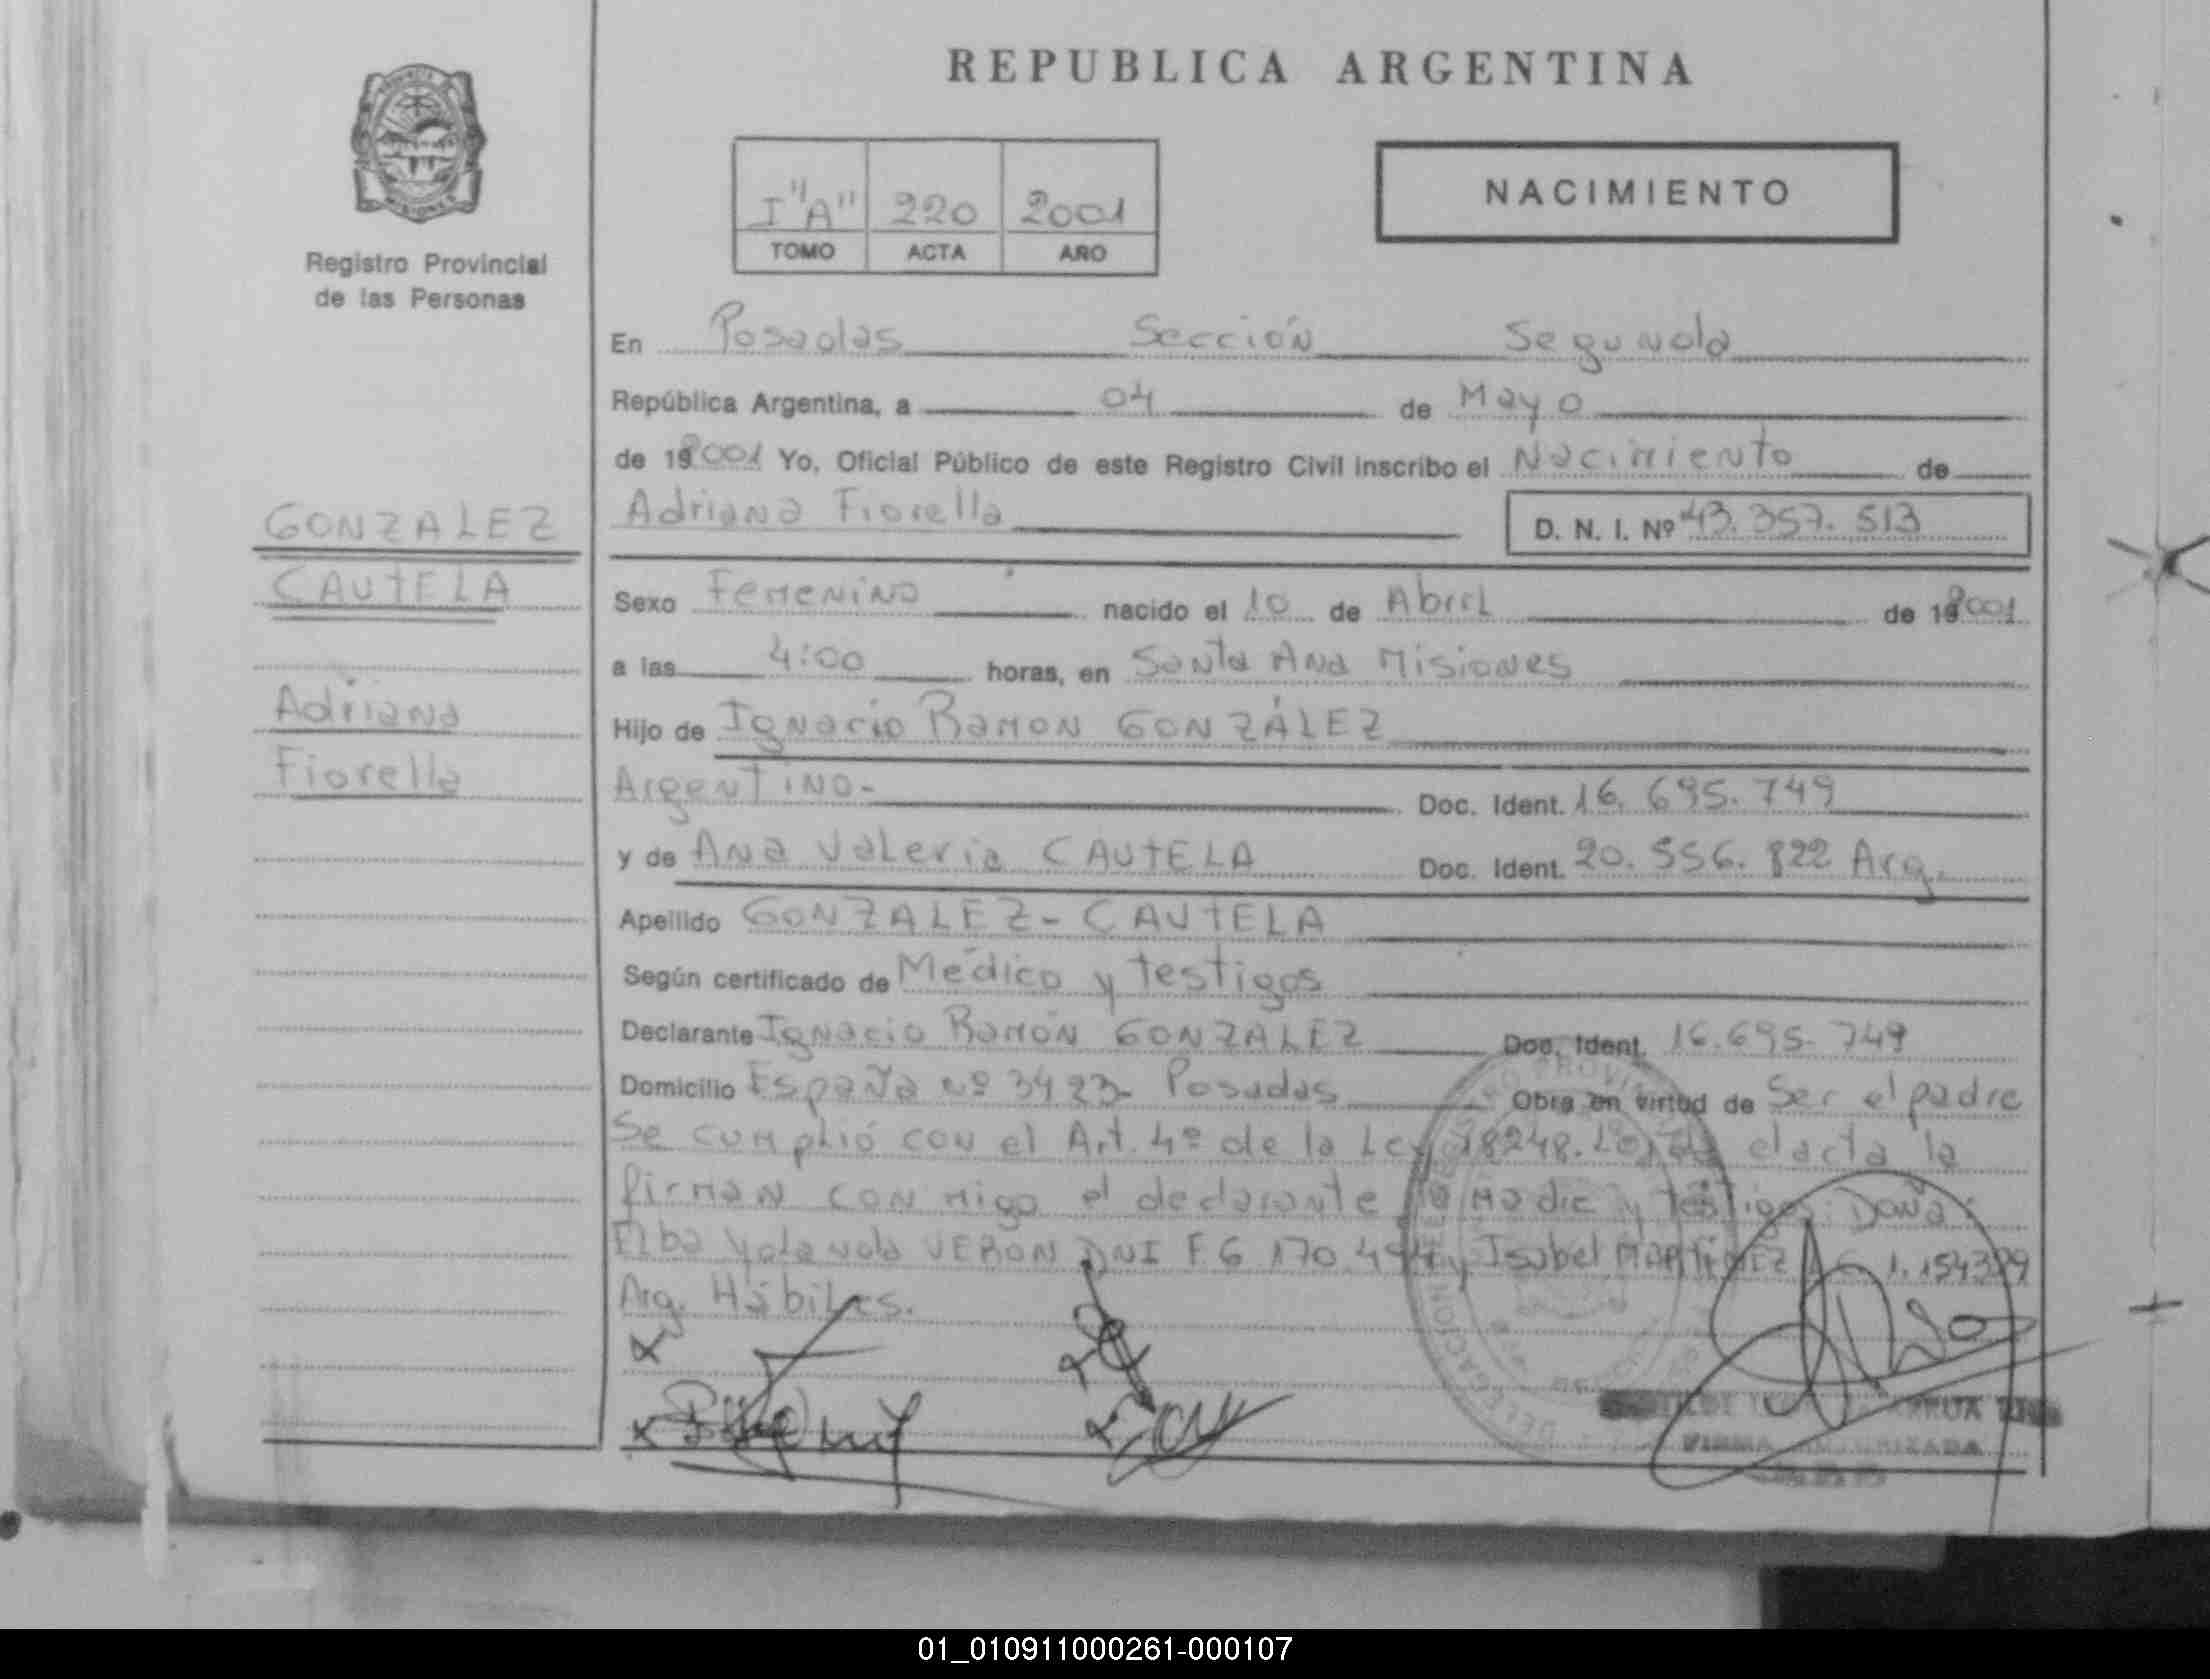 REPUBLICA ARGENTINA
PROVINCIA
MISIONES
Registro Provincial
de las Personas
NACIMIENTO
I "A" 220 2001
TOMO ACTA AÑO
En Posadas Sección Segunda
República Argentina, a 04 de Mayo
de 192001 Yo, Oficial Público de este Registro Civil inscribo el Nacimiento de
Adriana Fiorella D. N. I. Nº 43.357.513
GONZALEZ
CAUTELA
Adriana
Fiorella
Sexo Femenino nacido el 10 de Abril de 192001
a las 4:00 horas, en Santa Ana Misiones
Hijo de Ignacio Ramon GONZÁLEZ
Argentino.- Doc. Ident. 16.695.749
y de Ana Valeria CAUTELA Doc. Ident. 20.556.822 Arg.
Apellido GONZALEZ - CAUTELA
Según certificado de Médico y testigos
Declarante Ignacio Ramón GONZALEZ Doc. Ident. 16.695.749
Domicilio España nº 3423- Posadas Obra en virtud de Ser el padre
Se cumplió con el Art. 4º de la Ley 18248. el acta la
firman con migo el declarante la madre y testigos: Doña
Elba Yolanda VERON DNI F.6.170.494 y Isabel MARTINEZ
Arg. Hábiles.
FIRMA AUTORIZADA
01_010911000261-000107